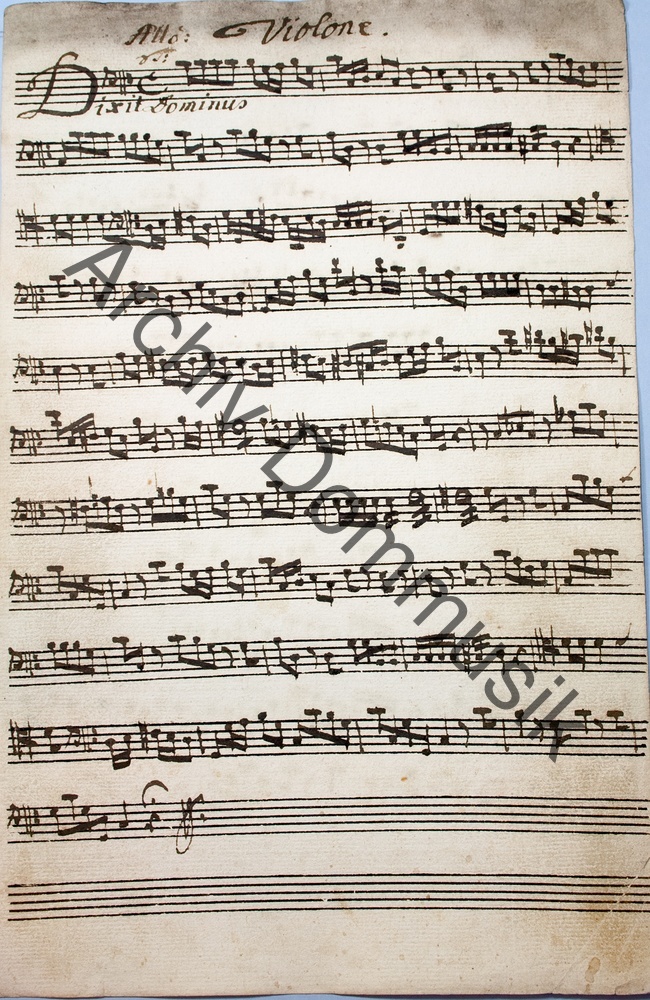 Allo: Violone.
Dixit Dominus
Archiv, Dommusik